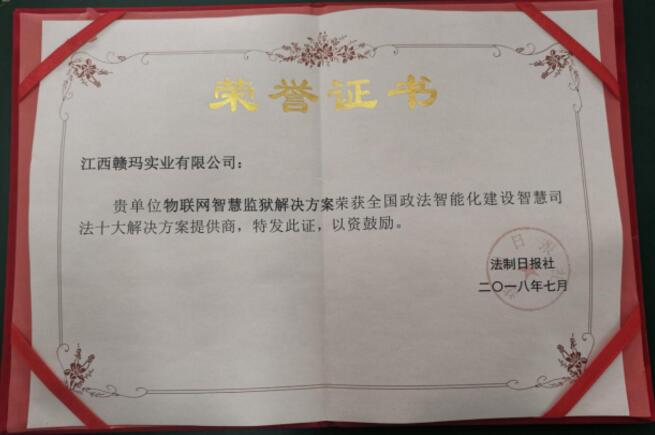 荣誉证书
江西赣玛实业有限公司：
贵单位物联网智慧监狱解决方案荣获全国政法智能化建设智慧司
法十大解决方案提供商，特发此证，以资鼓励。
法制日报社
二〇一八年七月